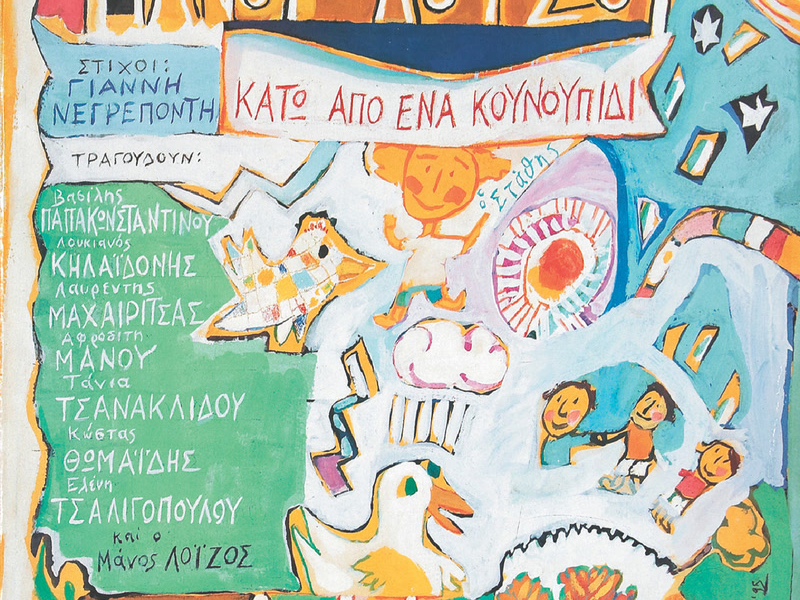 ΣΤΙΧΟΙ:
ΓΙΑΝΝΗ
ΝΕΓΡΕΠΟΝΤΗ
ΚΑΤΩ ΑΠΟ ΕΝΑ ΚΟΥΝΟΥΠΙΔΙ
ΤΡΑΓΟΥΔΟΥΝ:
ὁ Στάθης
Βασίλης
ΠΑΠΑΚΩΝΣΤΑΝΤΙΝΟΥ
Λουκιανός
ΚΗΛΑΪΔΟΝΗΣ
Λαυρέντης
ΜΑΧΑΙΡΙΤΣΑΣ
Αφροδίτη
ΜΑΝΟΥ
Τάνια
ΤΣΑΝΑΚΛΙΔΟΥ
Κώστας
ΘΩΜΑΪΔΗΣ
Ελένη
ΤΣΑΛΙΓΟΠΟΥΛΟΥ
καί ο
Μάνος ΛΟΪΖΟΣ
'95